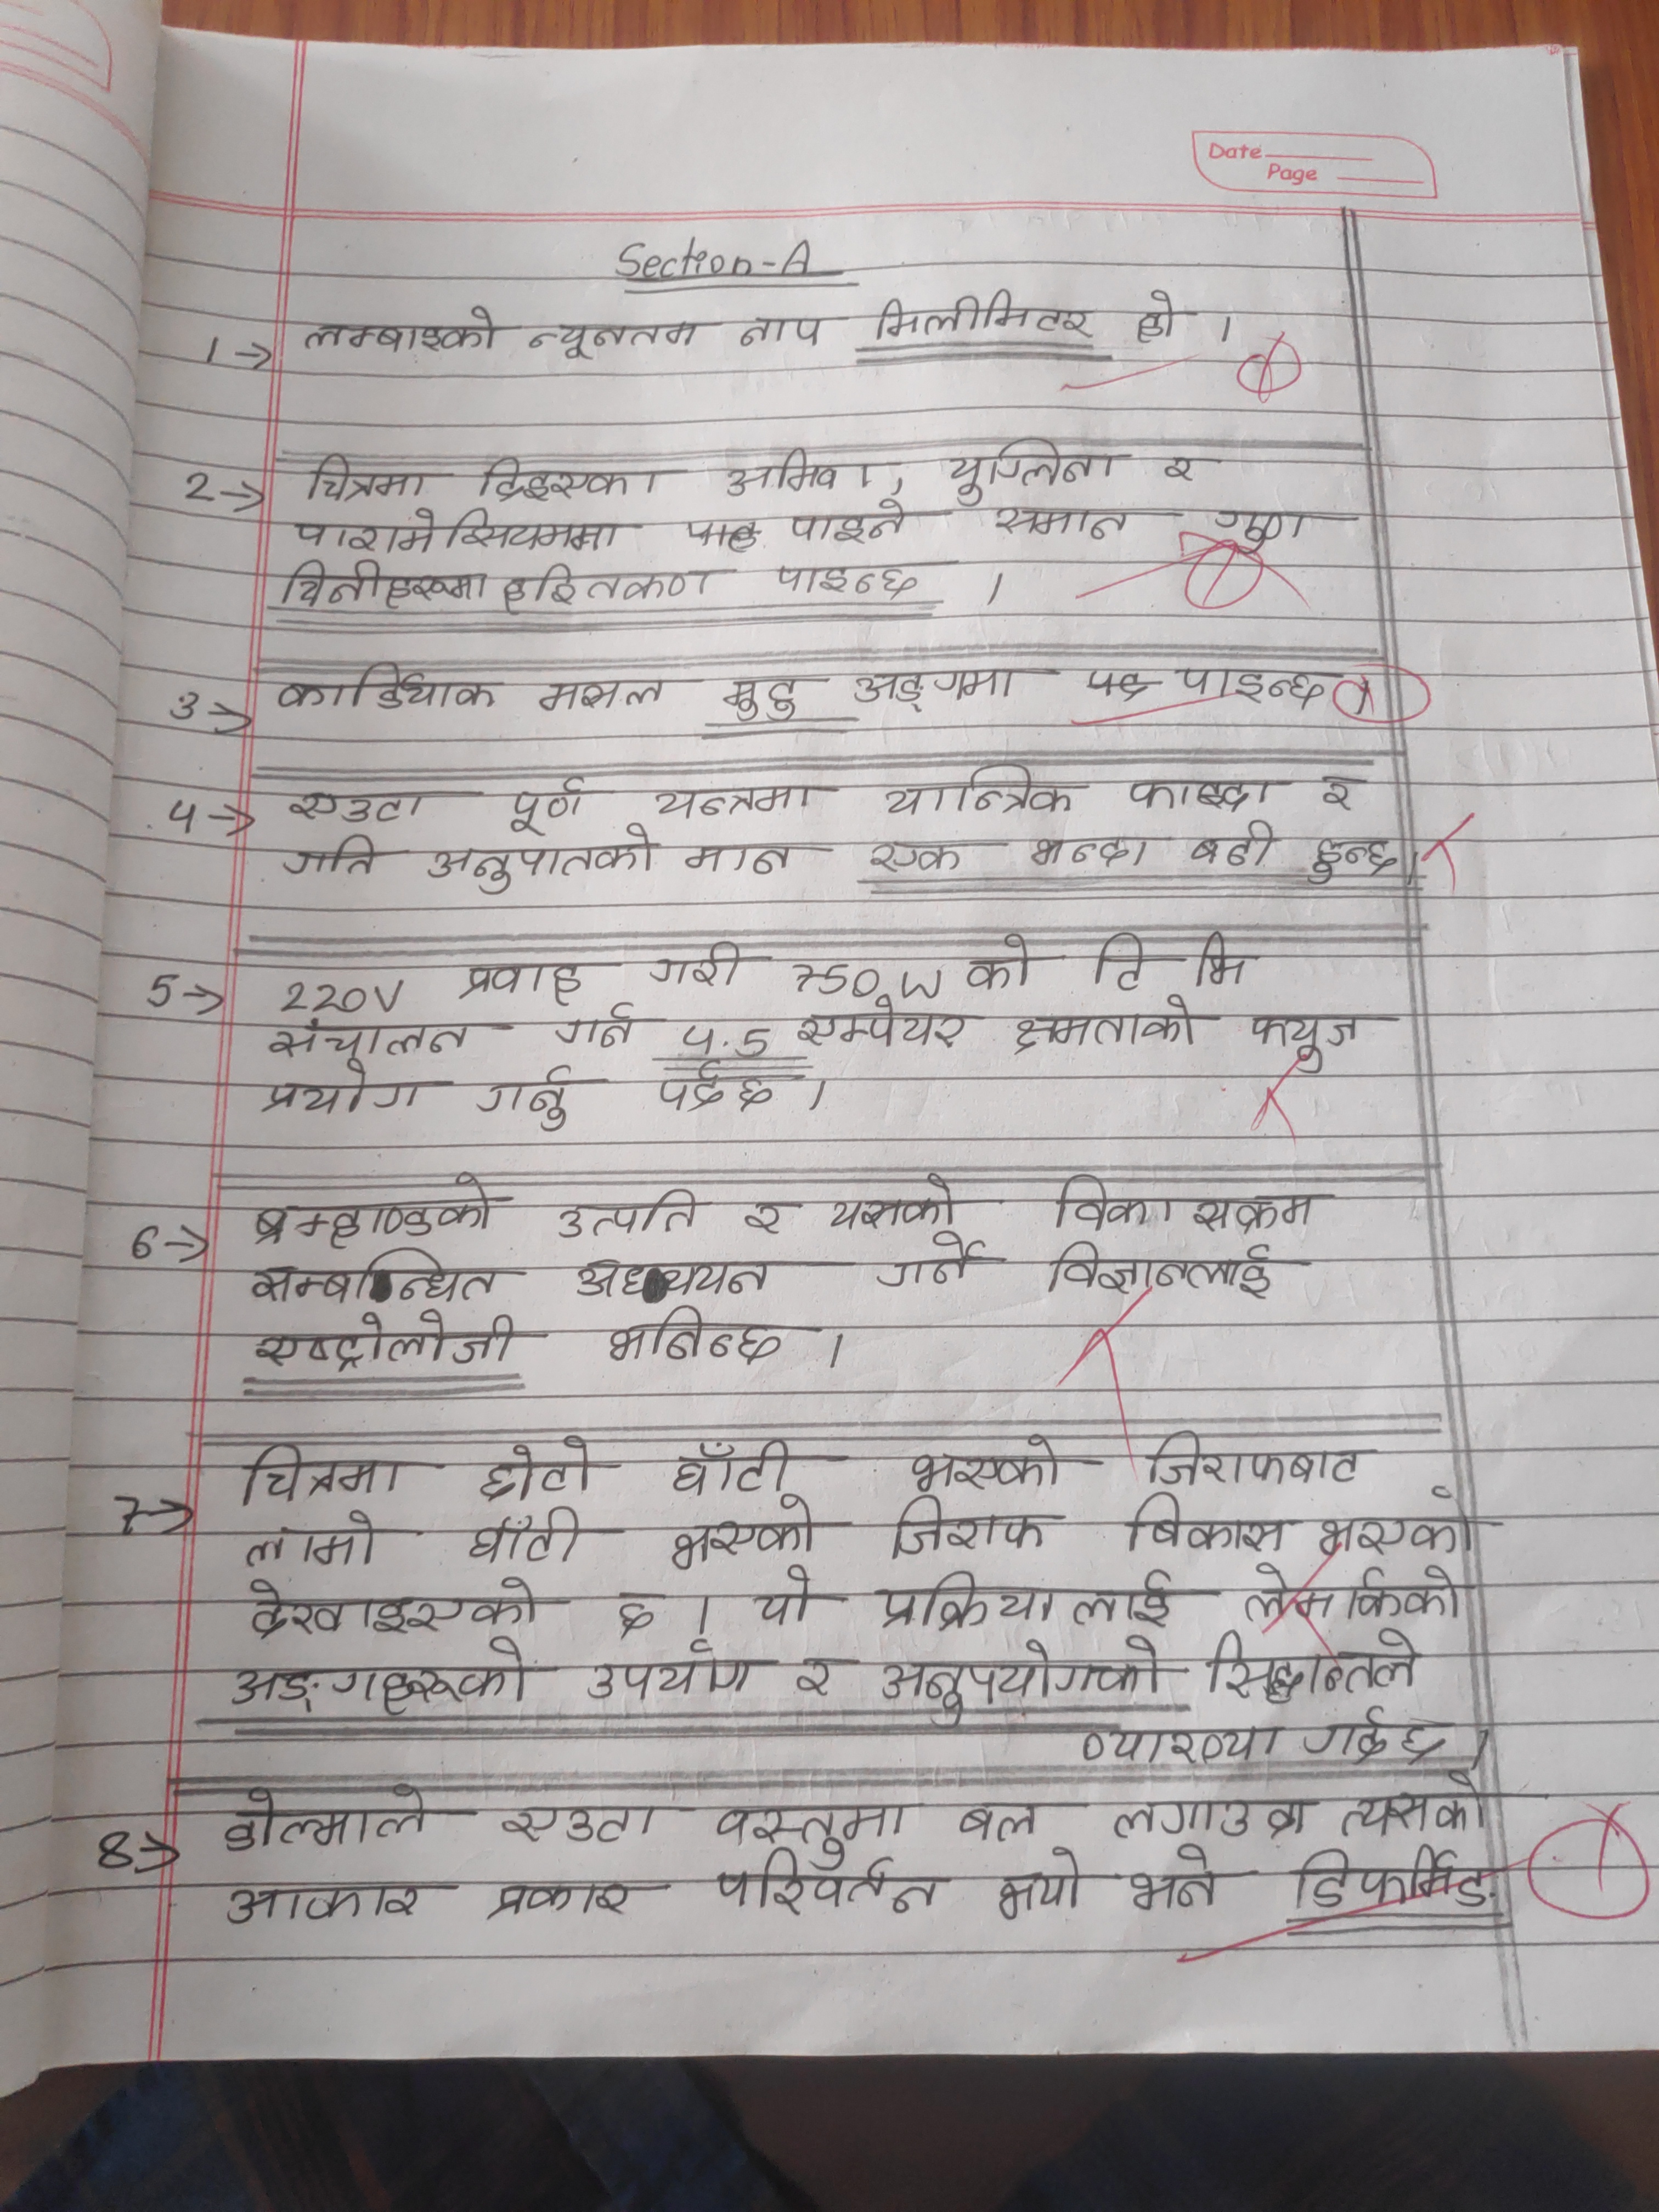 Date
Page
Section-A
1→ लम्बाइको न्यूनतम नाप मिलीमिटर हो ।
2→ चित्रमा दिइएका अमिवा, युग्लिना र
पारामेसियममा पाइने समान गुण
यिनीहरूमा हरितकण पाइन्छ ।
3→ कार्डियाक मसल मुटु अङ्गमा पाइन्छ ।
4→ एउटा पूर्ण यन्त्रमा यान्त्रिक फाइदा र
गति अनुपातको मान एक भन्दा बढी हुन्छ ।
5→ 220V प्रवाह गरी 750W को टि भि
संचालन गर्न 4.5 एम्पेयर क्षमताको फ्युज
प्रयोग गर्नु पर्दछ ।
6→ ब्रम्हाण्डको उत्पति र यसको विकासक्रम
सम्बन्धित अध्ययन गर्ने विज्ञानलाई
एष्ट्रोलोजी भनिन्छ ।
7→ चित्रमा छोटो घाँटी भएको जिराफबाट
लामो घाँटी भएको जिराफ बिकास भएको
देखाइएको छ । यो प्रक्रियालाई लेमार्कको
अङ्गहरूको उपयोग र अनुपयोगको सिद्धान्तले
व्याख्या गर्दछ ।
8→ डोल्माले एउटा वस्तुमा बल लगाउदा त्यसको
आकार प्रकार परिवर्तन भयो भने डिफर्मिङ